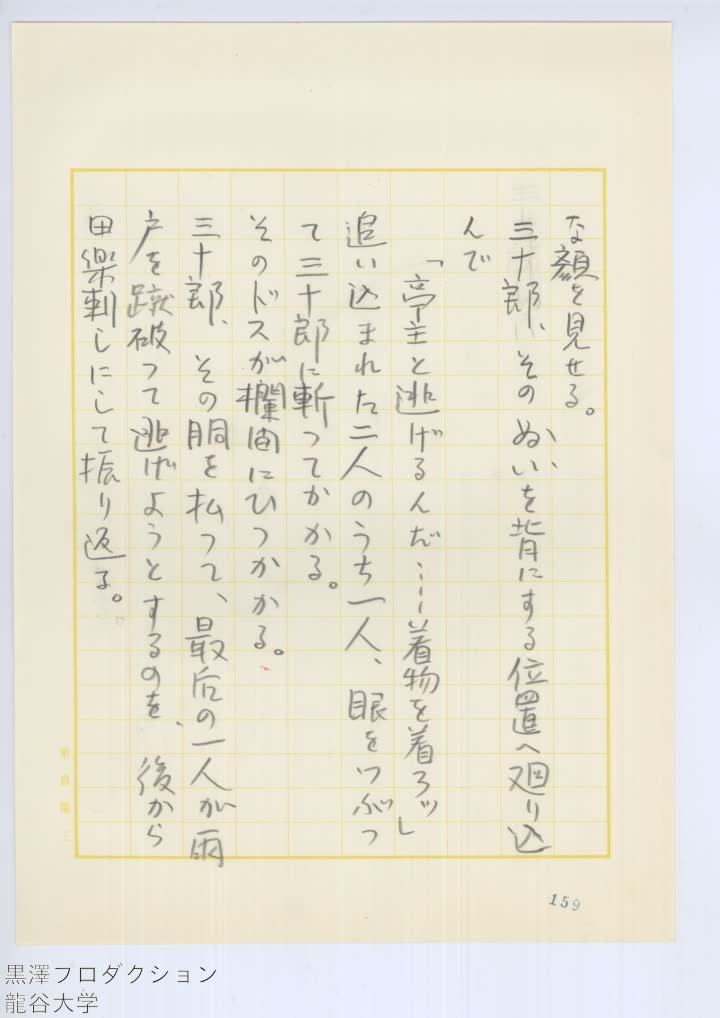 な顔を見せる。
三十郎、そのぬいを背にする位置へ廻り込
んで
「亭主と逃げるんだ……着物を着ろッ」
追い込まれた二人のうち一人、眼をつぶっ
て三十郎に斬ってかかる。
そのドスが欄間にひっかかる。
三十郎、その胴を払って、最后の一人が雨
戸を蹴破って逃げようとするのを、後から
田楽刺しにして振り返る。
159
黒澤プロダクション
龍谷大学